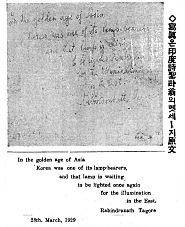 ◇寫眞은印度詩聖타翁의멧세ー지原文
In the golden age of Asia
Korea was one of its lamp-bearers,
and that lamp is waiting
to be lighted once again
for the illumination
in the East.
In the golden age of Asia
Korea was one of its lamp-bearers,
and that lamp is waiting
to be lighted once again
for the illumination
in the East.
Rabindranath Tagore
28th. March, 1929